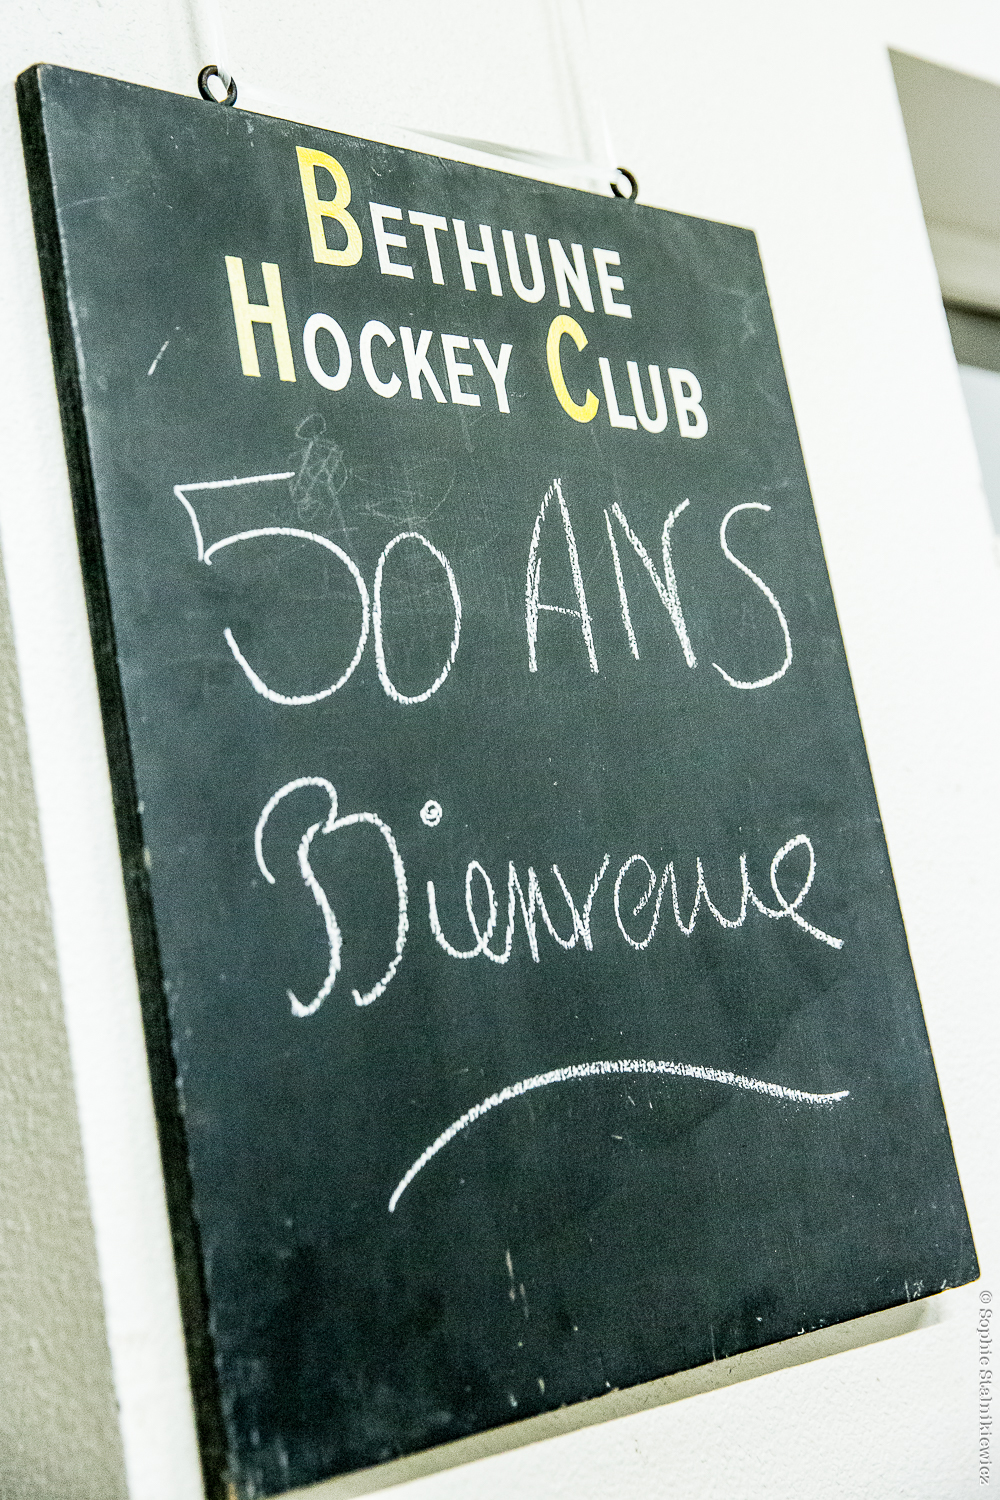 BETHUNE
HOCKEY CLUB
50 ANS
Bienvenue
© Sophie Stalnikiewicz